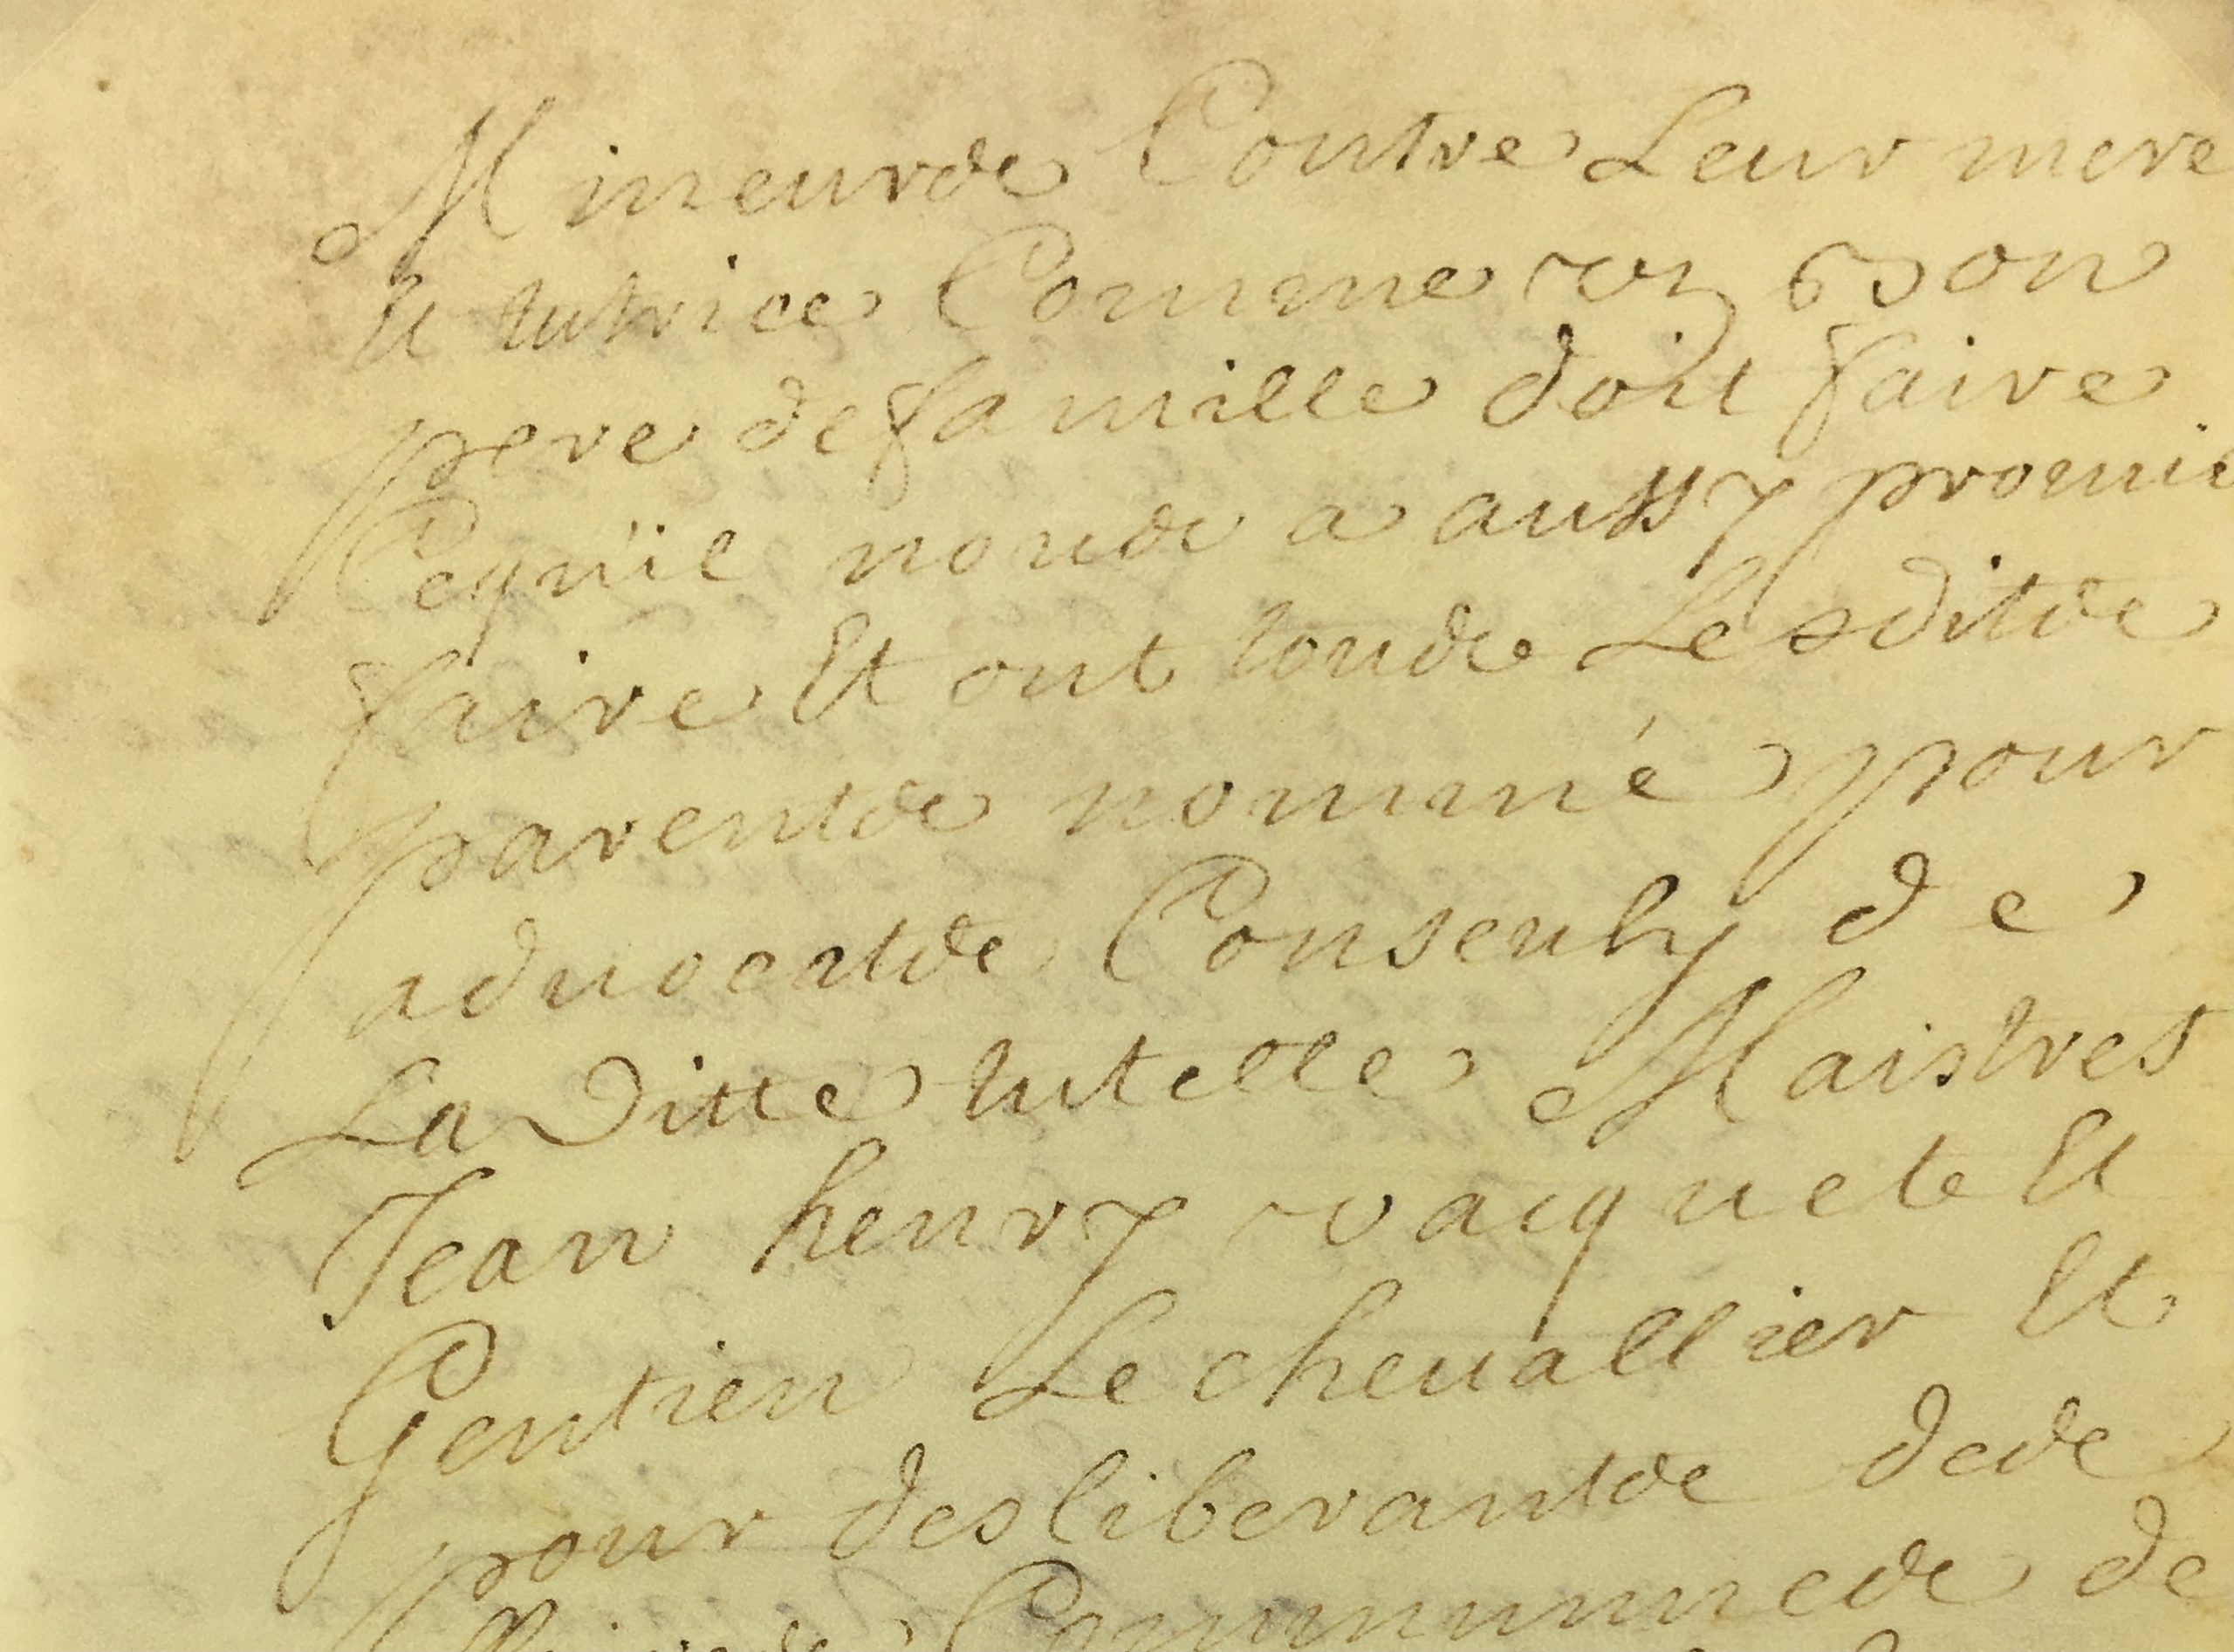 Mineurs Contre Leur mere
Et tutrice Comme un bon
pere de famille doit faire
Ce qu'il nous a aussy promis
faire Et ont tous Lesdits
parents nommé pour
advocats Conseuls de
La ditte tutelle Maistres
Jean henry vacquete Et
Gentien Le cheuallier Et
pour desliberants des
Communes de